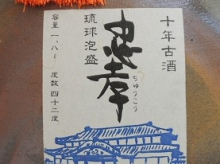 十年古酒
忠孝
ちゅうこう
琉球泡盛
容量一.八ℓ 度数四十二度